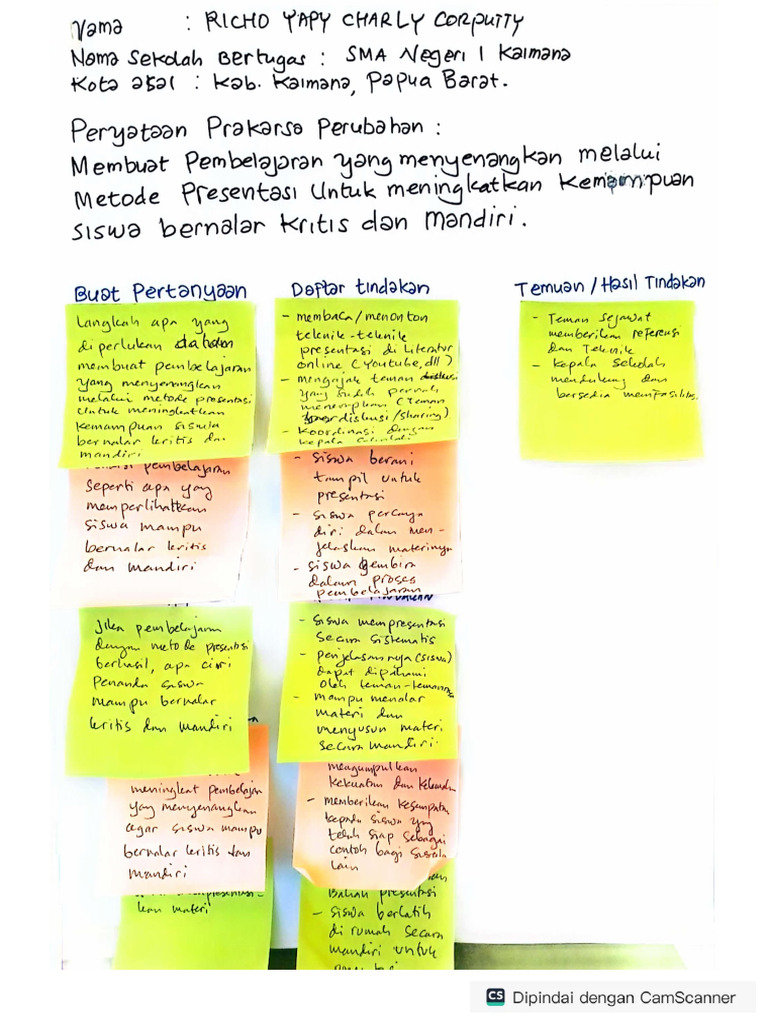 Nama : RICHO YAPY CHARLY CORPUTTY
Nama Sekolah Bertugas : SMA Negeri 1 Kaimana
Kota asal : Kab. Kaimana, Papua Barat.
Peryataan Prakarsa Perubahan :
Membuat Pembelajaran yang menyenangkan melalui
Metode Presentasi Untuk meningkatkan Kemampuan
siswa bernalar Kritis dan Mandiri.
Buat Pertanyaan
Langkah apa yang
diperlukan dalam
membuat pembelajaran
yang menyenangkan
melalui metode presentasi
untuk meningkatkan
kemampuan siswa
bernalar kritis dan
mandiri
pembelajaran
Seperti apa yang
memperlihatkan
siswa mampu
bernalar kritis
dan mandiri
Jika pembelajaran
dengan metode presentasi
berhasil, apa ciri
Penanda siswa
mampu bernalar
kritis dan mandiri
meningkat pembelajar
yang menyenangkan
agar siswa mampu
bernalar kritis dan
mandiri
kan materi
Daftar tindakan
- membaca/menonton
teknik-teknik
presentasi di literatur
online (Youtube, dll)
- mengajak teman
yang sudah pernah
menerapkan (Teman
diskusi/sharing)
- Koordinasi dengan
kepala
- siswa berani
tampil untuk
presentasi
- siswa percaya
diri dalam men-
jelaskan materinya
- siswa gembira
dalam proses
pembelajaran
- siswa mempresentasi
secara sistematis
- penjelasannya (siswa)
dapat dipahami
oleh teman-temannya
- mampu menalar
materi dan
menyusun materi
secara mandiri.
mengumpulkan
kekuatan dan
- memberikan kesempatan
kepada siswa yg
telah siap sebagai
contoh bagi siswa
lain
Bahan presentasi
- siswa berlatih
di rumah secara
mandiri untuk
Temuan / Hasil Tindakan
- Teman sejawat
memberikan referensi
dan Teknik
- Kepala sekolah
mendukung dan
bersedia memfasilitas
CS Dipindai dengan CamScanner